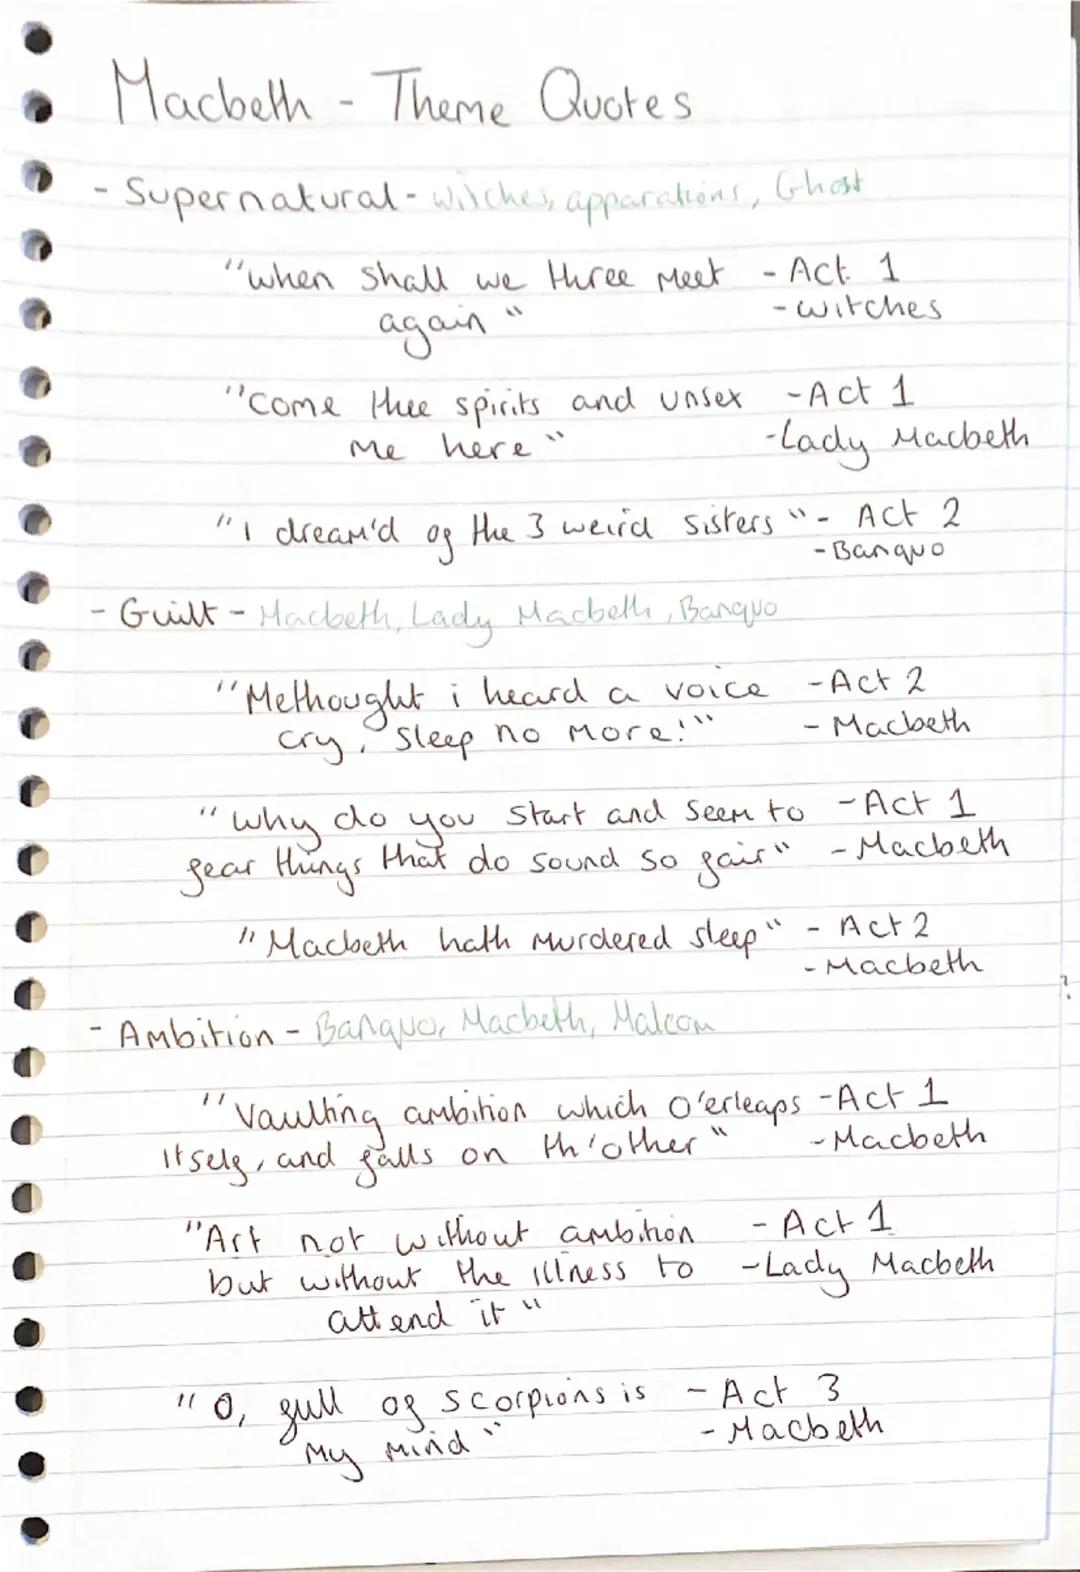 Macbeth - Theme Quotes
- Supernatural - witches, apparations, Ghost
"when shall we three meet - Act 1
again" - witches
"Come thee spirits and unsex - Act 1
me here" - Lady Macbeth
"I dream'd of the 3 weird sisters" - Act 2
- Banquo
- Guilt - Macbeth, Lady Macbeth, Banquo
"Methought i heard a voice - Act 2
cry, "sleep no more!"" - Macbeth
"why do you start and seem to - Act 1
fear things that do sound so fair" - Macbeth
"Macbeth hath murdered sleep" - Act 2
- Macbeth
- Ambition - Banquo, Macbeth, Malcom
"Vaulting ambition which o'erleaps - Act 1
itself, and falls on th'other" - Macbeth
"Art not without ambition - Act 1
but without the illness to - Lady Macbeth
attend it"
"O, full of scorpions is - Act 3
my mind" - Macbeth